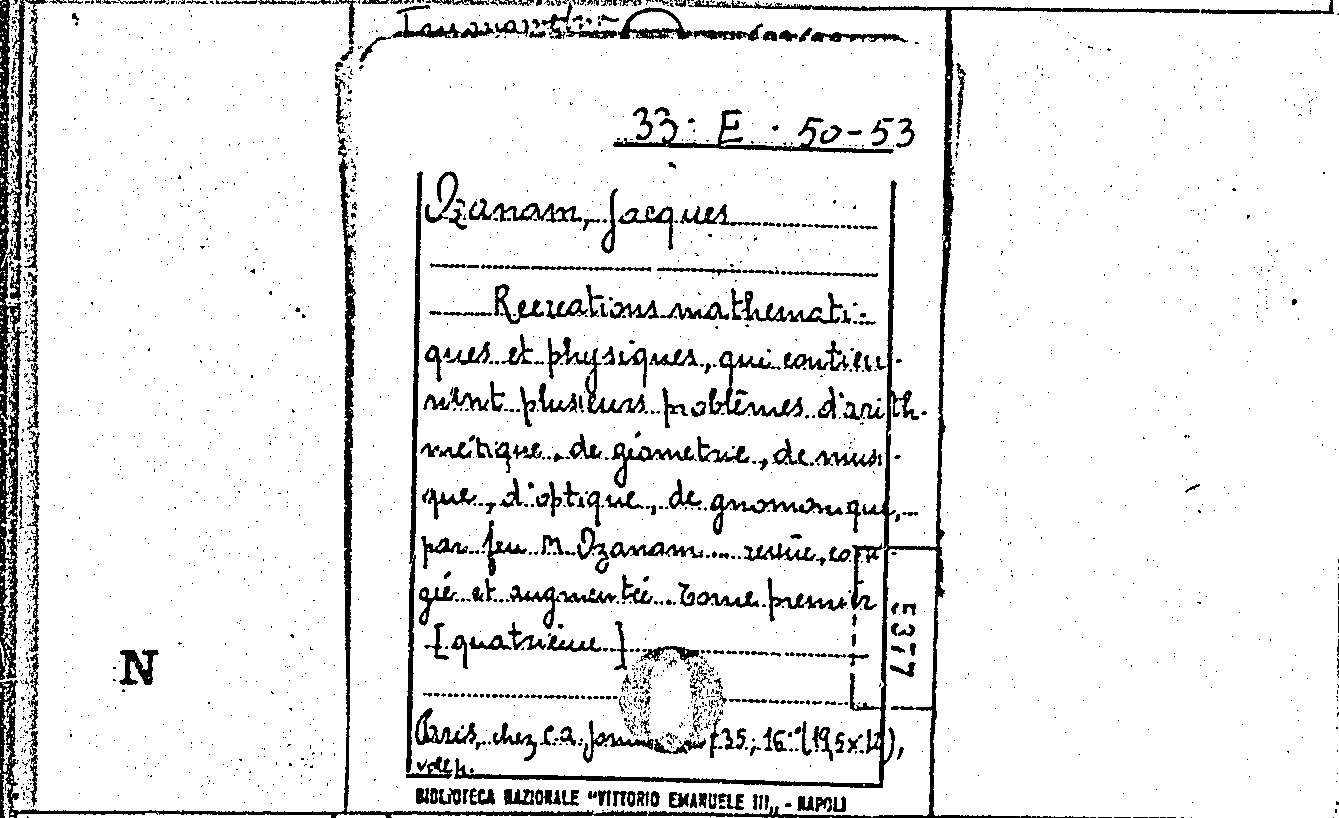 33 · E · 50-53
Ozanam, Jacques
Recreations mathemati-
ques et physiques, qui contien-
nent plusieurs problêmes d'arith-
métique, de géometrie, de musi-
que, d'optique, de gnomonique,
par feu M Ozanam... revûe, corri-
gée et augmentée. Tome premier
[quatrieme]
5377
N
Paris, chez C. A. 35, 16° (19,5x12),
BIBLIOTECA NAZIONALE "VITTORIO EMANUELE III„ - NAPOLI